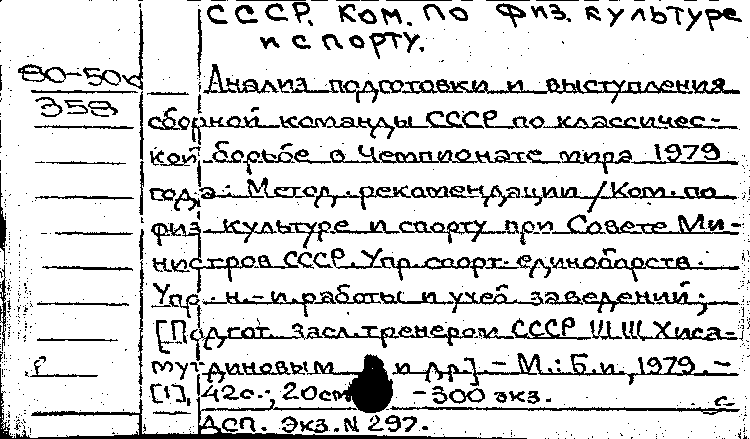 СССР. Ком. по физ. культуре
и спорту.
80-50к
358
Анализ подготовки и выступления
сборной команды СССР по классичес-
кой борьбе в Чемпионате мира 1979
года: Метод. рекомендации / Ком. по
физ. культуре и спорту при Совете Ми-
нистров СССР. Упр. спорт. единоборств.
Упр. н.-и. работы и учеб. заведений;
[Подгот. засл. тренером СССР Ш.Ш. Хиса-
мутдиновым и др]. - М.: Б.и, 1979. -
[1], 42с.; 20см - 300 экз.
с.
Дсп. Экз. N 297.